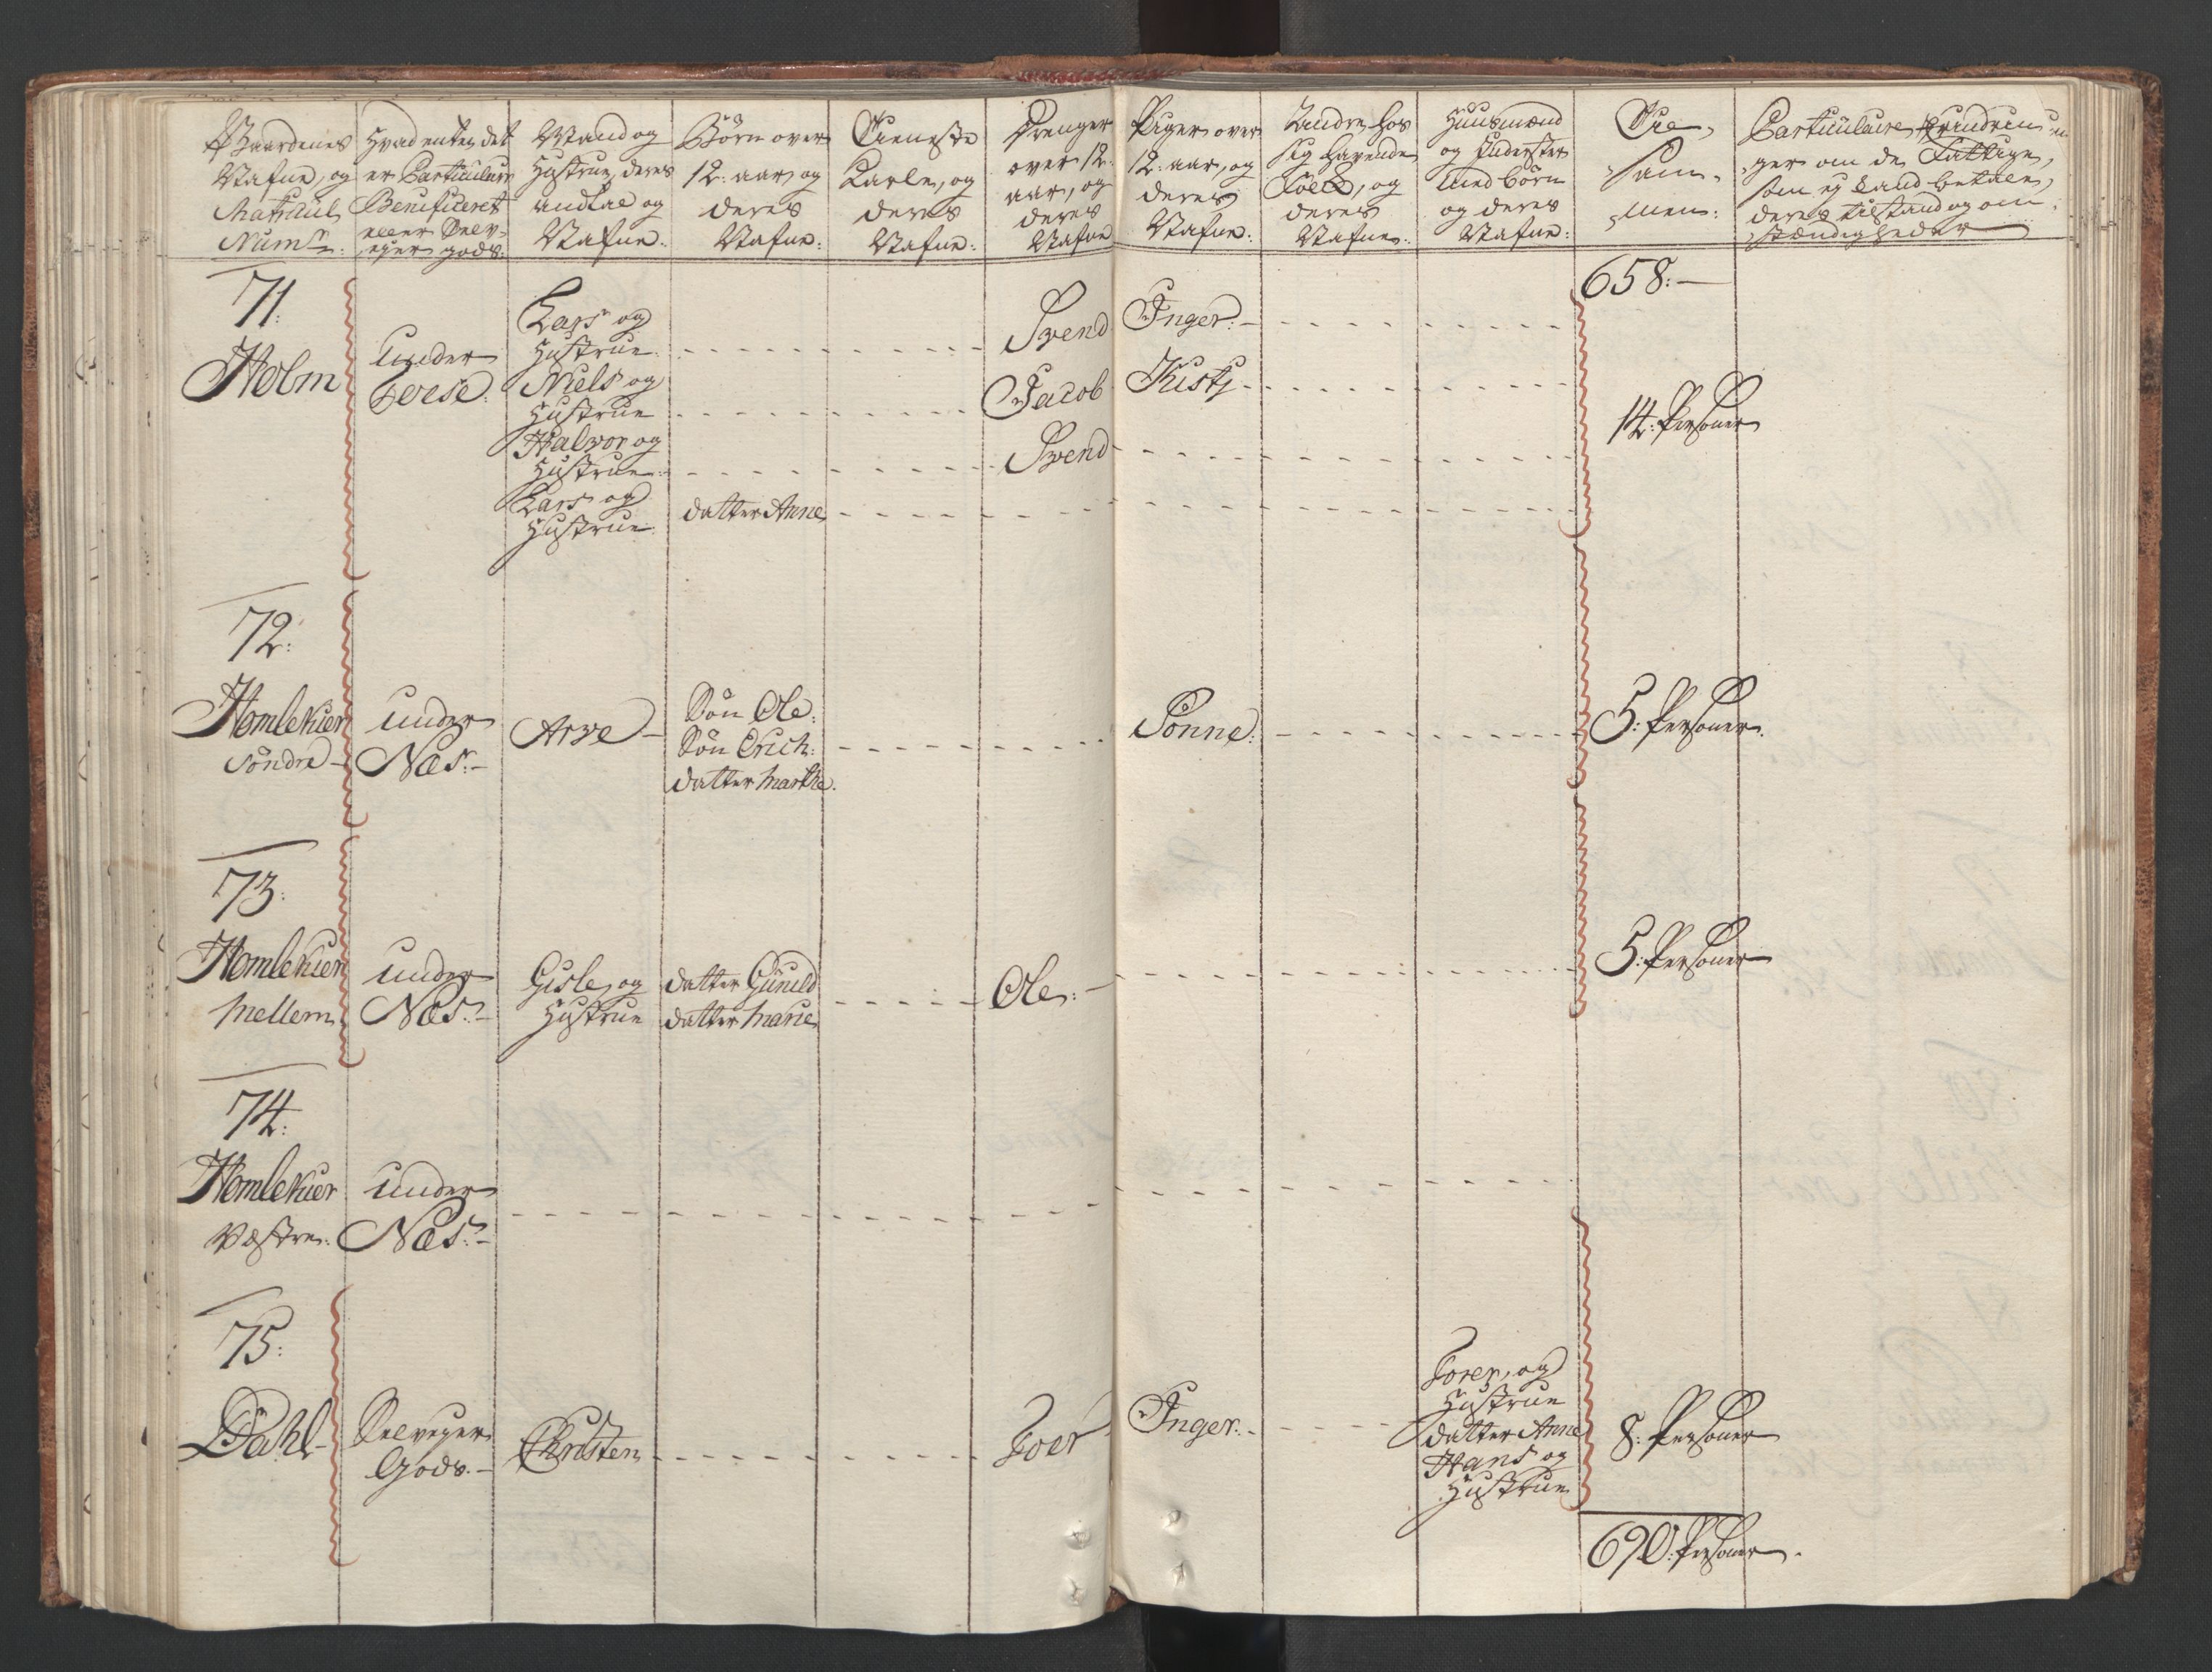 Gaardenes
Nafne, og
Matricul
Numr:
Hvad enten det
er Particulair
Beneficeret
eller Selv-
ejer gods:
Mand og
Hustrue, deres
andtal og
Nafne:
Börn over
12: aar, og
deres
Nafne:
Tieneste
Karle, og
deres
Nafne:
Drenger
over 12:
aar, og
deres
Nafne
Piger over
12: aar, og
deres
Nafne:
Andre hos
sig havende
Folck, og
deres
Nafne:
Huusmænd
og Inderster
med börn
og deres
Nafne:
Til,
sam-
men:
Particulaire Erindrin
ger om de Fattige,
som ej kand betale,
deres tilstand og om-
stændigheder
658:—
71:
Holm
under
Lars og
Hustrue:
Svend
Inger:-
Niels og
Hustrue
Jacob
Kisty-
Halvor og
Hustrue:
Svend
Lars og
Hustrue
datter Anne
14: Personer
72:
Homlekier
söndre-
under
Næs:-
Arve-
Sön Ole:
Sön Erich:
datter Marthe.
Sönne:
5: Personer.
73:
Homlekier
Mellem
under
Næs:-
Gisle, og
Hustrue
datter Gunild
datter Marie
Ole:-
5: Personer
74:
Homlekier
Vestre:
under
Næs:-
75:
Dahl-
Selvejer
Gods.-
Christen
Joer
Inger:-
Joren, og
Hustrue
datter Anne
Hans og
Hustrue
8: Personer
690: Personer.